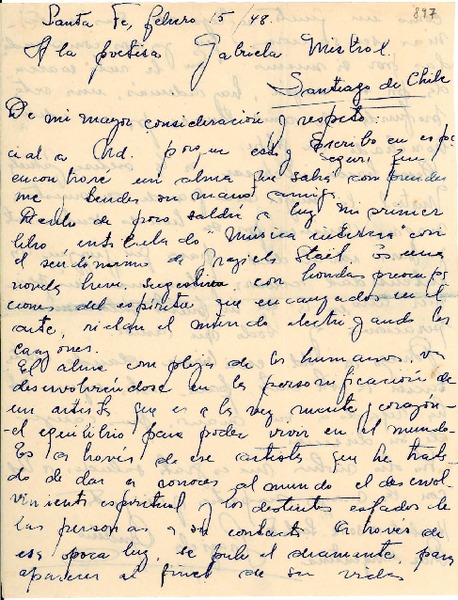 Santa Fe, febrero 15/48. 897
A la poetisa Gabriela Mistral.
Santiago de Chile
De mi mayor consideración y respeto:
Escribo en espe
cial a Ud. porque estoy segura que
encontraré un alma que sabrá comprender
me, tenderé su mano amiga.
Dentro de poco saldrá a luz mi primer
libro intitulado "Música interna" con
el seudónimo de Graziela Staël. Es una
novela breve, sugestiva, con hondas preocupa
ciones del espíritu que encauzados en el
arte, rielan el mundo electrizando los
corazones.
El alma compleja de los humanos, va
desenvolviéndose en la personificación de
un artista que es a la vez mente y corazón
el equilibrio para poder vivir en el mundo.
Es a través de ese artista que he trata
do de dar a conocer al mundo el desenvol
vimiento espiritual y los distintos estados de
las personas a su contacto. A través de
esa opaca luz, se pule el diamante, para
aparecer al final de su vida